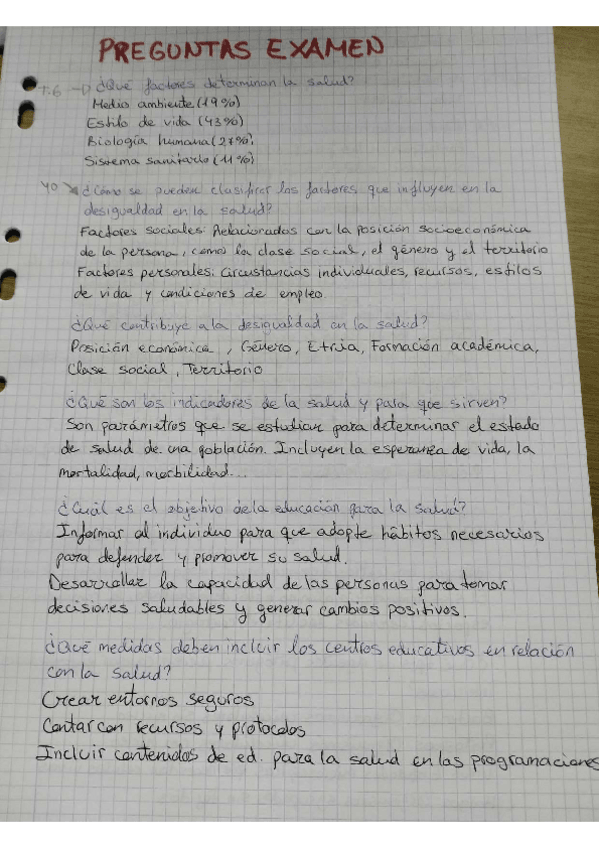 PREGUNTAS EXAMEN
T.6 → ¿Qué factores determinan la salud?
Medio ambiente (19%)
Estilo de vida (43%)
Biología humana (27%)
Sistema sanitario (11%)
YO ¿Cómo se pueden clasificar los factores que influyen en la
desigualdad en la salud?
Factores sociales: Relacionados con la posición socioeconómica
de la persona, como la clase social, el género y el territorio
Factores personales: Circustancias individuales, recursos, estilos
de vida y condiciones de empleo
¿Qué contribuye a la desigualdad en la salud?
Posición económica, Género, Etnia, Formación académica,
Clase social, Territorio
¿Qué son los indicadores de la salud y para que sirven?
Son parámetros que se estudian para determinar el estado
de salud de una población. Incluyen la esperanza de vida, la
mortalidad, morbilidad...
¿Cuál es el objetivo de la educación para la salud?
Informar al individuo para que adopte hábitos necesarios
para defender y promover su salud.
Desarrollar la capacidad de las personas para tomar
decisiones saludables y generar cambios positivos.
¿Qué medidas deben incluir los centros educativos en relación
con la salud?
Crear entornos seguros
Contar con recursos y protocolos
Incluir contenidos de ed. para la salud en las programaciones